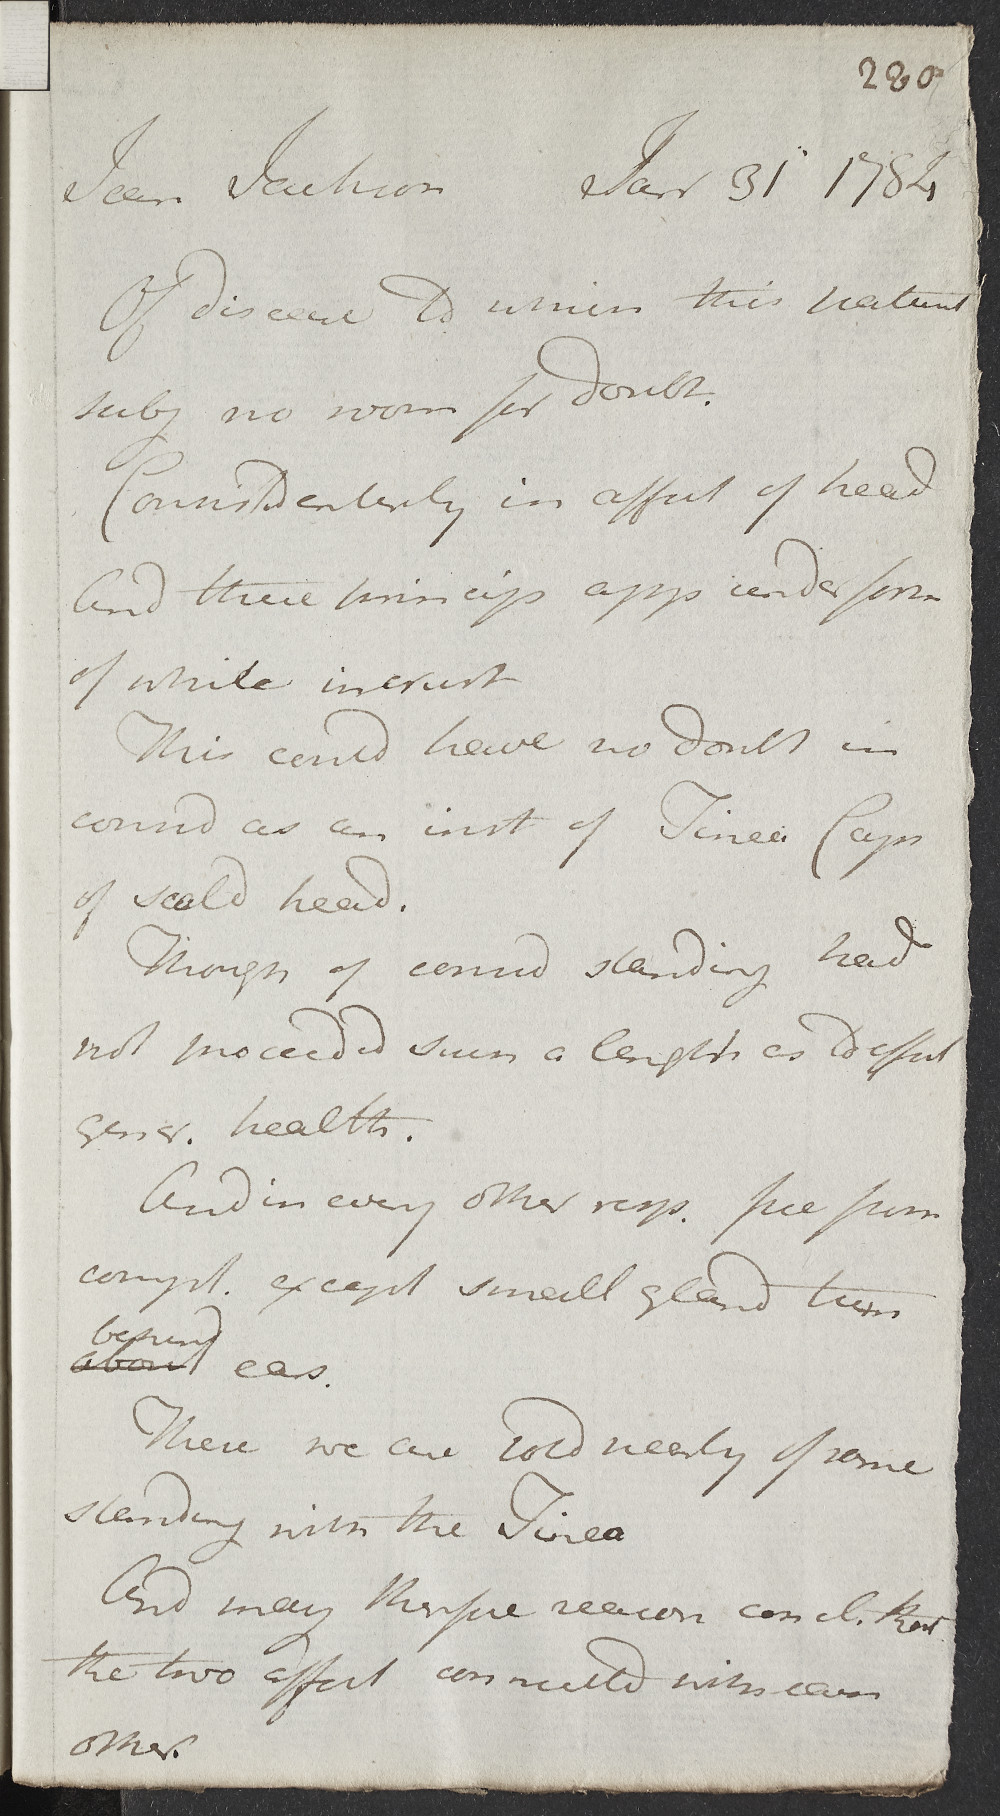 280
Jean Jackson Jan 31 1784
Of disease to which this patient
subj no room for doubt.
Consistderberly in affect of head
And these princip app under form
of white incrust
This could have no doubt in
consid as an inst of Tinea Cap
of scald head.
Though of consid standing had
not proceeded such a length as to affect
gener. health.
And in every other resp. free from
compt. except small gland tum
behind
about ears.
These we are told nearly of same
standing with the Tinea
And may therefore reason concl. that
the two affect connected with each
other.